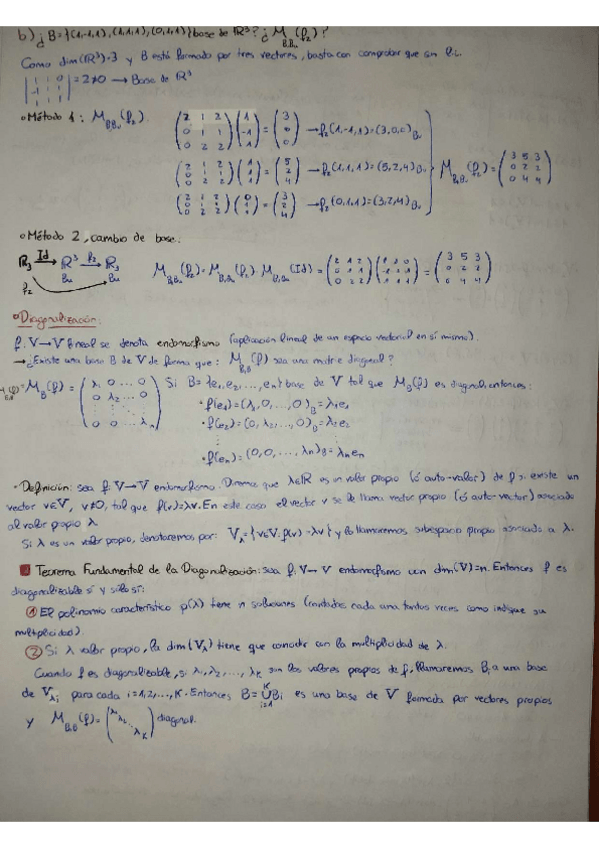 b) ¿B={(1,-1,1),(1,1,1),(0,1,1)} base de ℝ³? ¿M_{B,Bu}(f₂)?
Como dim(ℝ³)=3 y B está formado por tres vectores, basta con comprobar que sin l.i.
|1 1 0; -1 1 1; 1 1 1| = 2≠0 → Base de ℝ³
•Método 1: M_{B,Bu}(f₂).
(2 1 2; 0 1 1; 0 2 2)(1; -1; 1) = (3; 0; 0) → f₂(1,-1,1)=(3,0,0)_{Bu}
(2 1 2; 0 1 1; 0 2 2)(1; 1; 1) = (5; 2; 4) → f₂(1,1,1)=(5,2,4)_{Bu}
(2 1 2; 0 1 1; 0 2 2)(0; 1; 1) = (3; 2; 4) → f₂(0,1,1)=(3,2,4)_{Bu}
M_{B,Bu}(f₂) = (3 5 3; 0 2 2; 0 4 4)
•Método 2, cambio de base:
ℝ₃ Id→ ℝ³ f₂→ ℝ₃
Bu Bu
f₂
M_{B,Bu}(f₂)=M_{Bu,Bu}(f₂)·M_{B,Bu}(Id) = (2 1 2; 0 1 1; 0 2 2)(1 1 0; -1 1 1; 1 1 1) = (3 5 3; 0 2 2; 0 4 4)
•Diagonalización:
f: V→V lineal se denota endomorfismo (aplicación lineal de un espacio vectorial en sí mismo).
→¿Existe una base B de V de forma que: M_{B,B}(f) sea una matriz diagonal?
M_{B,B}(f)=M_B(f) = (λ₁ 0 ... 0; 0 λ₂ ... 0; 0 0 ... λₙ) Si B={e₁,e₂,...,eₙ} base de V tal que M_B(f) es diagonal, entonces:
•f(e₁)=(λ₁,0,...,0)_B=λ₁e₁
•f(e₂)=(0,λ₂,...,0)_B=λ₂e₂
•f(eₙ)=(0,0,...,λₙ)_B=λₙeₙ
•Definición: sea f: V→V endomorfismo. Diremos que λ∈ℝ es un valor propio (ó auto-valor) de f si existe un
vector v∈V, v≠0, tal que f(v)=λv. En este caso el vector v se le llama vector propio (ó auto-vector) asociado
al valor propio λ
Si λ es un valor propio, denotaremos por: V_λ={v∈V: f(v)=λv} y lo llamaremos subespacio propio asociado a λ.
Teorema Fundamental de la Diagonalización: sea f: V→V endomorfismo con dim(V)=n. Entonces f es
diagonalizable sí y sólo sí:
① El polinomio característico p(λ) tiene n soluciones (contadas cada una tantas veces como indique su
multiplicidad).
② Si λ valor propio, la dim(V_λ) tiene que coincidir con la multiplicidad de λ.
Cuando f es diagonalizable, si λ₁,λ₂,...,λ_K son los valores propios de f, llamaremos Bᵢ a una base
de V_{λᵢ} para cada i=1,2,...,K. Entonces B=⋃_{i=1}^{K}Bᵢ es una base de V formada por vectores propios
y M_{B,B}(f)=(λ₁ λ₂ ⋱ λ_K) diagonal.